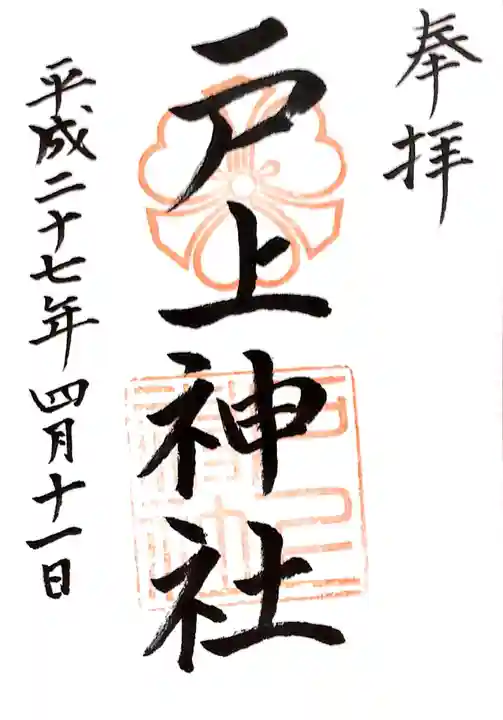 奉拝
戸上神社
平成二十七年四月十一日